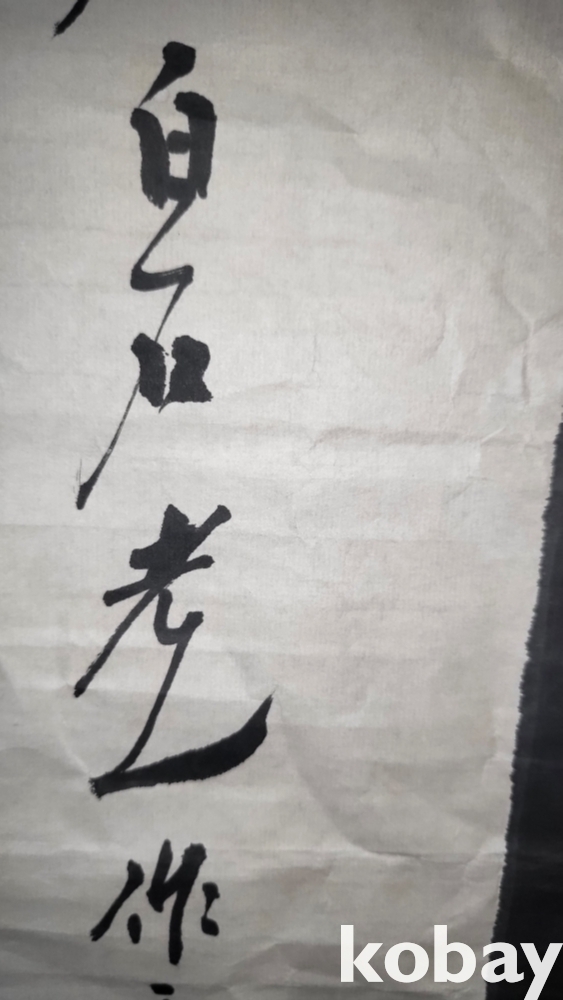 白石老人作
kobay